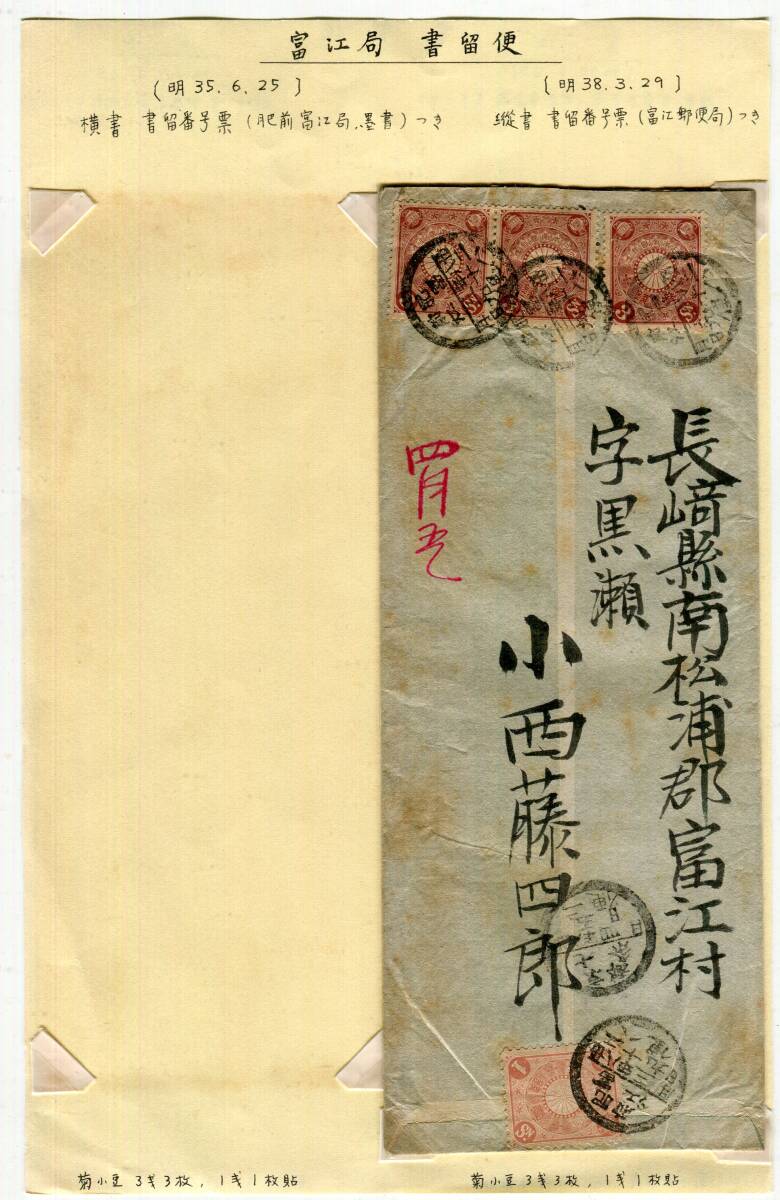 富江局 書留便
〔明35.6.25〕
〔明38.3.29〕
横書 書留番号票(肥前富江局、墨書)つき
縦書 書留番号票(富江郵便局)つき
長﨑縣南松浦郡富江村
字黒瀬
小西藤四郎
四月五
1
菊小豆 3戔3枚, 1戔1枚貼
菊小豆 3戔3枚, 1戔1枚貼